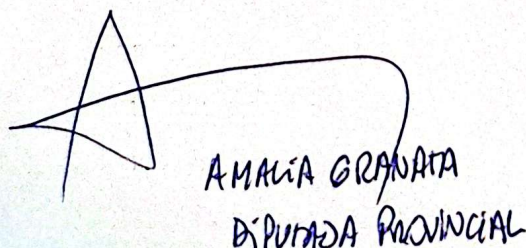 AMALIA GRANATA
DIPUTADA PROVINCIAL